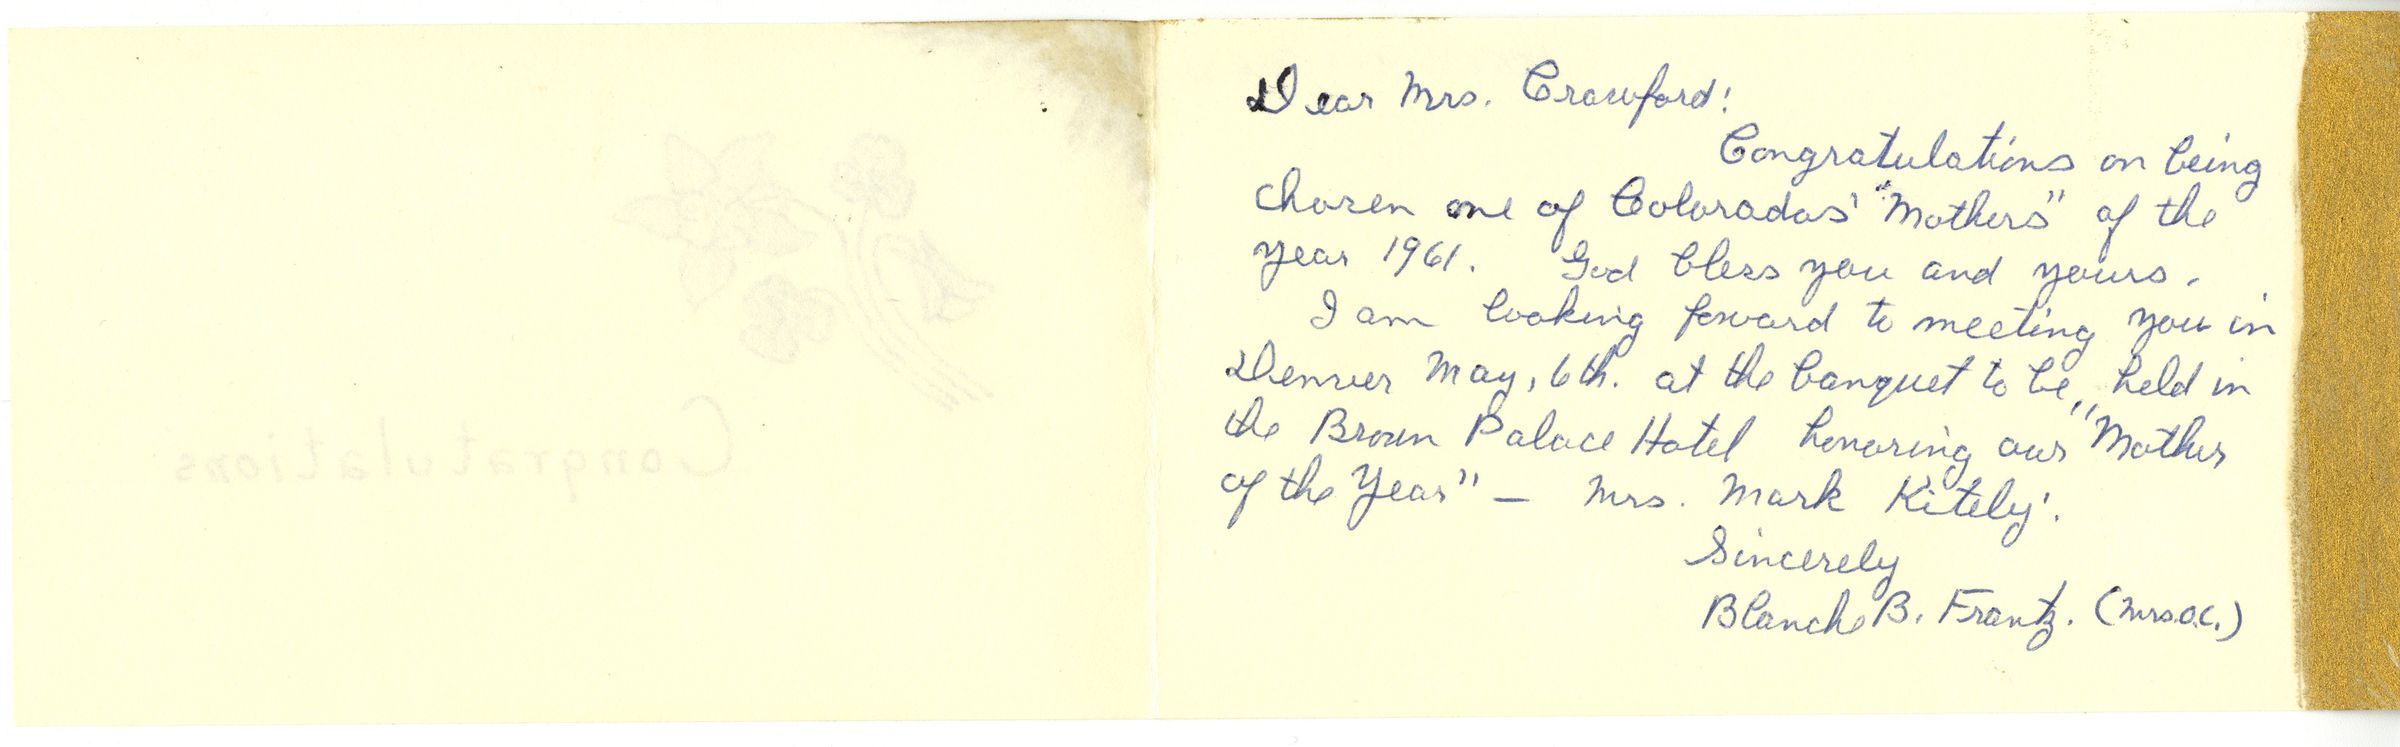 Congratulations
Dear Mrs. Crawford:
Congratulations on being
chosen one of Colorados' "Mothers" of the
year 1961. God bless you and yours.
I am looking forward to meeting you in
Denver May, 6th. at the banquet to be held in
the Brown Palace Hotel honoring our "Mother
of the Year" — Mrs. Mark Kitely.
Sincerely
Blanche B. Frantz. (Mrs. O.C.)